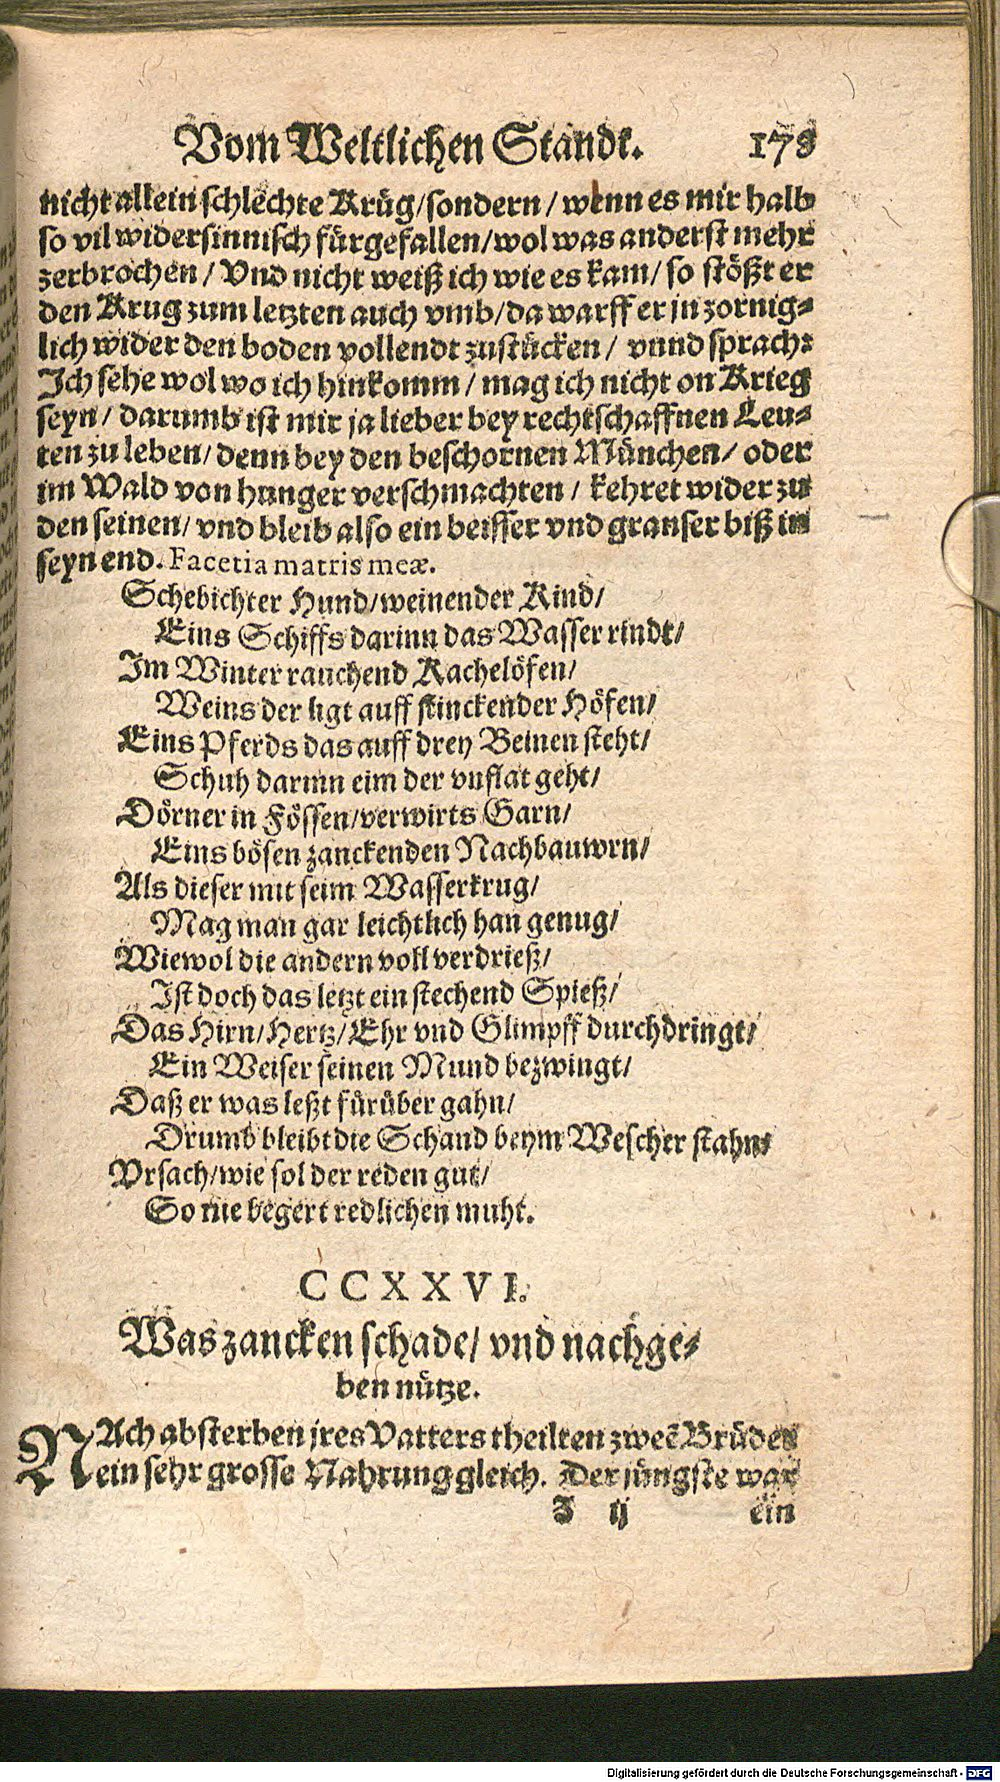 Vom Weltlichen Standt. 179
nicht allein schlechte Krüg/sondern/wenn es mir halb
so vil widersinnisch fürgefallen/wol was anderst mehr
zerbrochen/Vnd nicht weiß ich wie es kam/so stößt er
den Krug zum letzten auch vmb/da warff er jn zornig⸗
lich wider den boden vollendt zustücken/vnnd sprach:
Ich sehe wol wo ich hinkomm/mag ich nicht on Krieg
seyn/darumb ist mir ja lieber bey rechtschaffnen Leu⸗
ten zu leben/denn bey den beschornen München/oder
im Wald von hunger verschmachten/kehret wider zu
den seinen/vnd bleib also ein beisser vnd granser biß in
seyn end. Facetia matris meæ.
Schebichter Hund/weinender Kind/
Eins Schiffs darinn das Wasser rindt/
Im Winter rauchend Kachelöfen/
Weins der ligt auff stinckender Höfen/
Eins Pferds das auff drey Beinen steht/
Schuh darinn eim der vnflat geht/
Dörner in Fössen/verwirts Garn/
Eins bösen zanckenden Nachbauwrn/
Als dieser mit seim Wasserkrug/
Mag man gar leichtlich han genug/
Wiewol die andern voll verdrieß/
Ist doch das letzt ein stechend Spieß/
Das Hirn/Hertz/Ehr vnd Glimpff durchdringt/
Ein Weiser seinen Mund bezwingt/
Daß er was leßt fürüber gahn/
Drumb bleibt die Schand beym Wescher stahn/
Vrsach/wie sol der reden gut/
So nie begert redlichen muht.
CCXXVI.
Was zancken schade/vnd nachge⸗
ben nütze.
NAch absterben jres Vatters theilten zweẽ Brüder
ein sehr grosse Nahrung gleich. Der jüngste war
Z ij ein
Digitalisierung gefördert durch die Deutsche Forschungsgemeinschaft - DFG